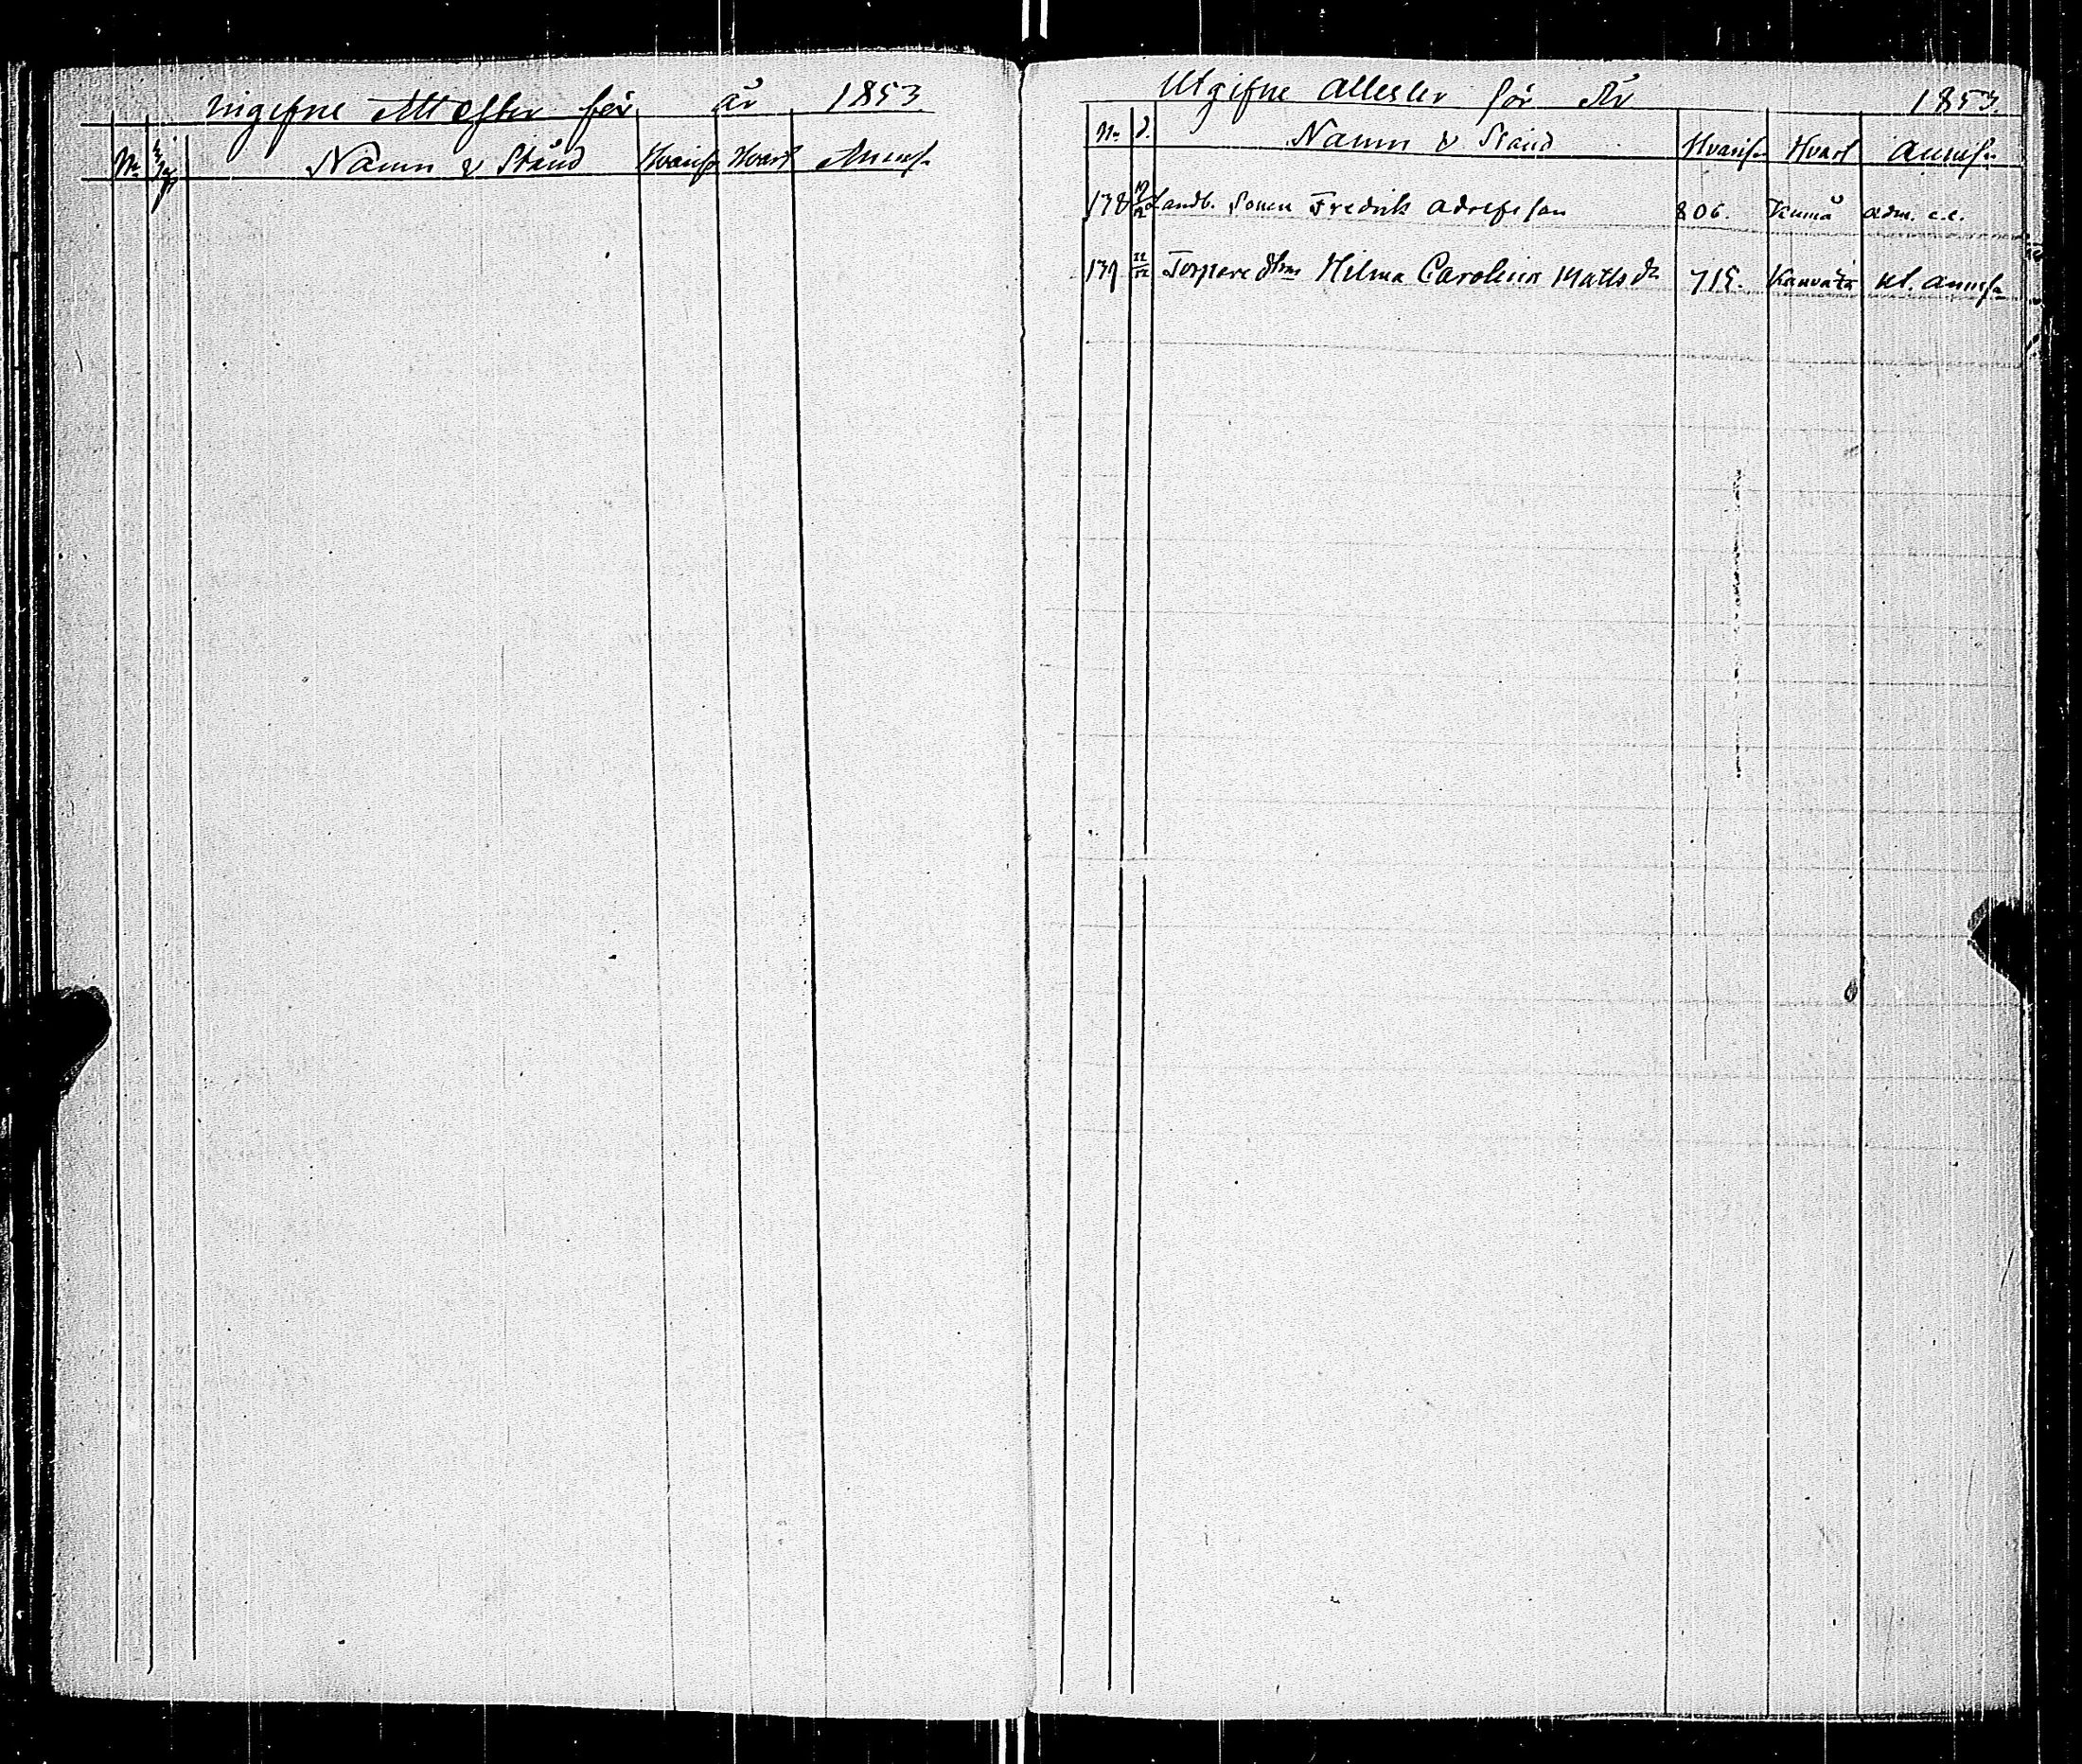 ingifne Attester för år 1853
No Namn & Stånd Hvarifr Hvart Anmf.
Utgifne attester för År 1853
No d. Namn & Stånd Hvarifr Hvart Anmf.
138 Landb. Sonen Fredrik Adolfsson 806. Kumå adm. c.c.
139 22/12 Torpare dtren Hilma Carolina Matts dr 715. Kauvatsa